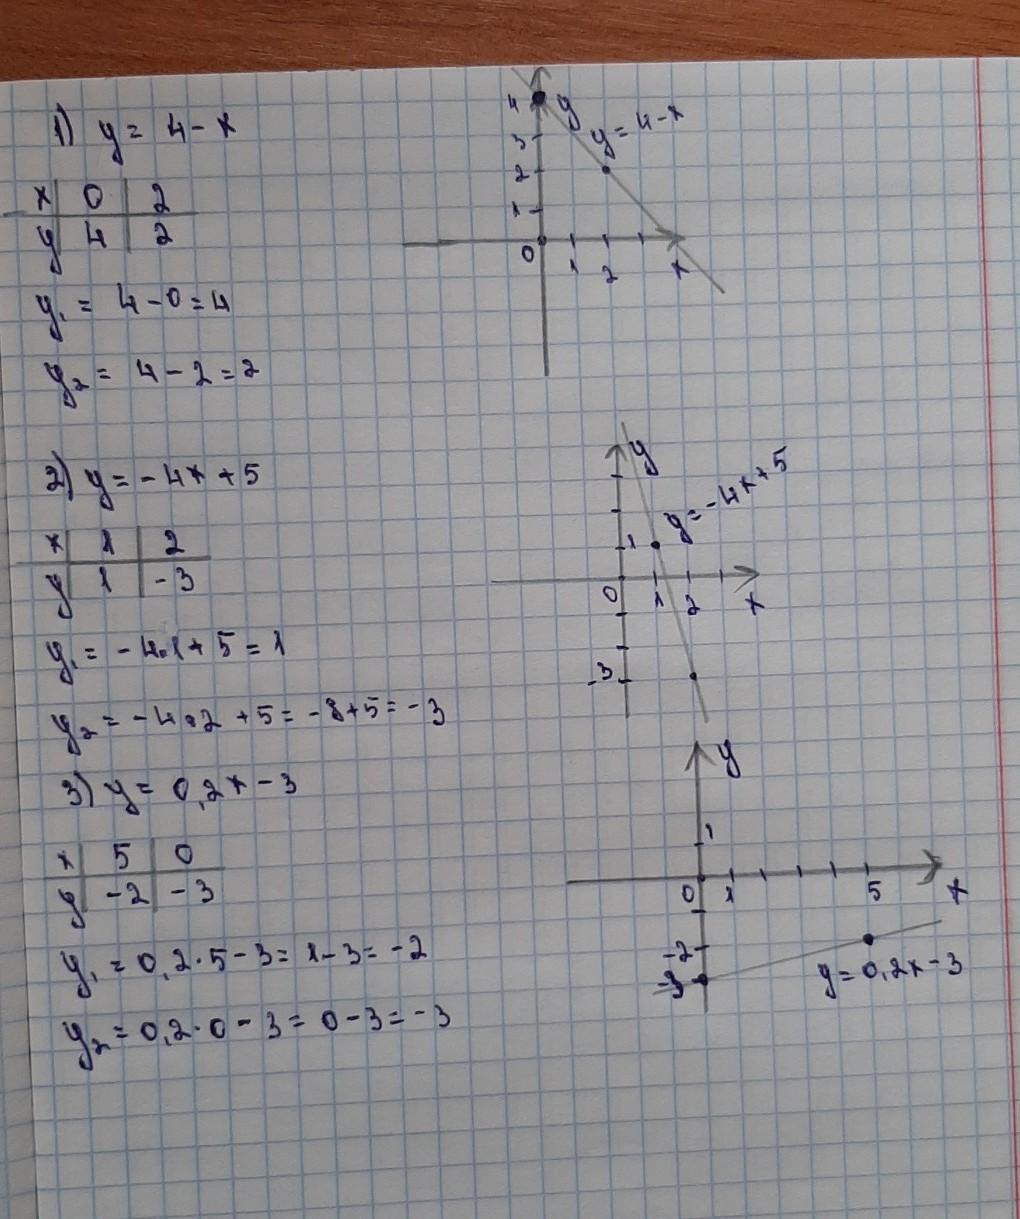 1) y = 4 - x
x 0 2
y 4 2
y₁ = 4 - 0 = 4
y₂ = 4 - 2 = 2
4 y
3
2
1
0 1 2 x
y = 4 - x
2) y = - 4x + 5
x 1 2
y 1 -3
y₁ = - 4·1 + 5 = 1
y₂ = - 4·2 + 5 = -8 + 5 = -3
y
y = -4x + 5
1
0 1 2 x
-3
3) y = 0,2x - 3
x 5 0
y -2 -3
y₁ = 0,2·5 - 3 = 1 - 3 = -2
y₂ = 0,2·0 - 3 = 0 - 3 = -3
y
1
0 1 5 x
-2
-3
y = 0,2x - 3